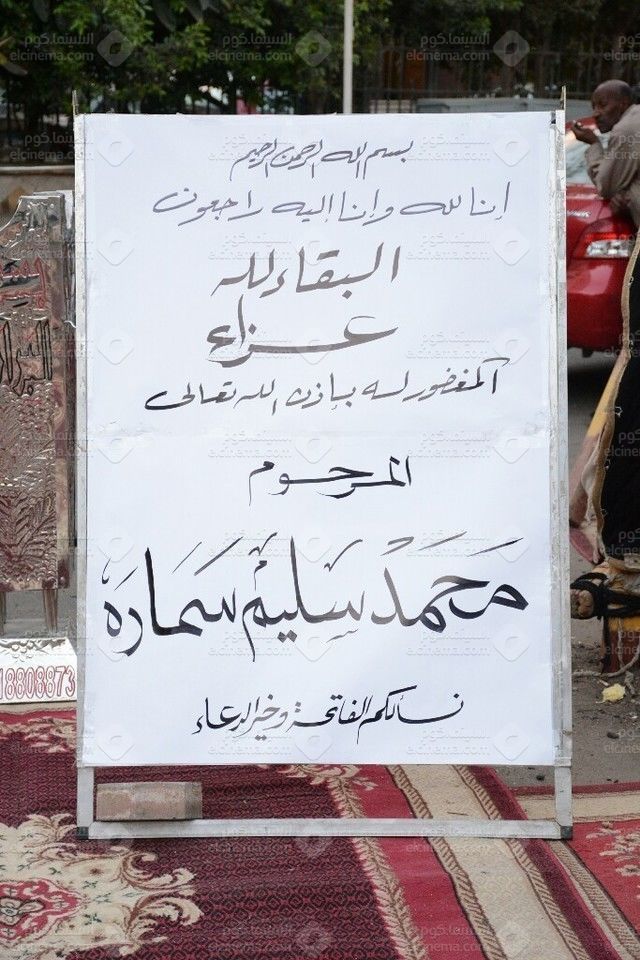 بسم الله الرحمن الرحيم
إنا لله وإنا إليه راجعون
البقاء لله
عزاء
المغفور له بإذن الله تعالى
المرحوم
محمد سليم سماره
نسألكم الفاتحة وخير الدعاء
18808873
السينما.كوم
elcinema.com